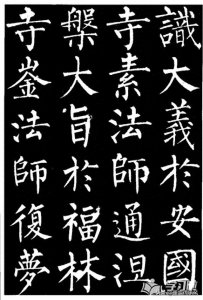 識大義於安國
寺素法師通涅
槃大旨於福林
寺崟法師復夢